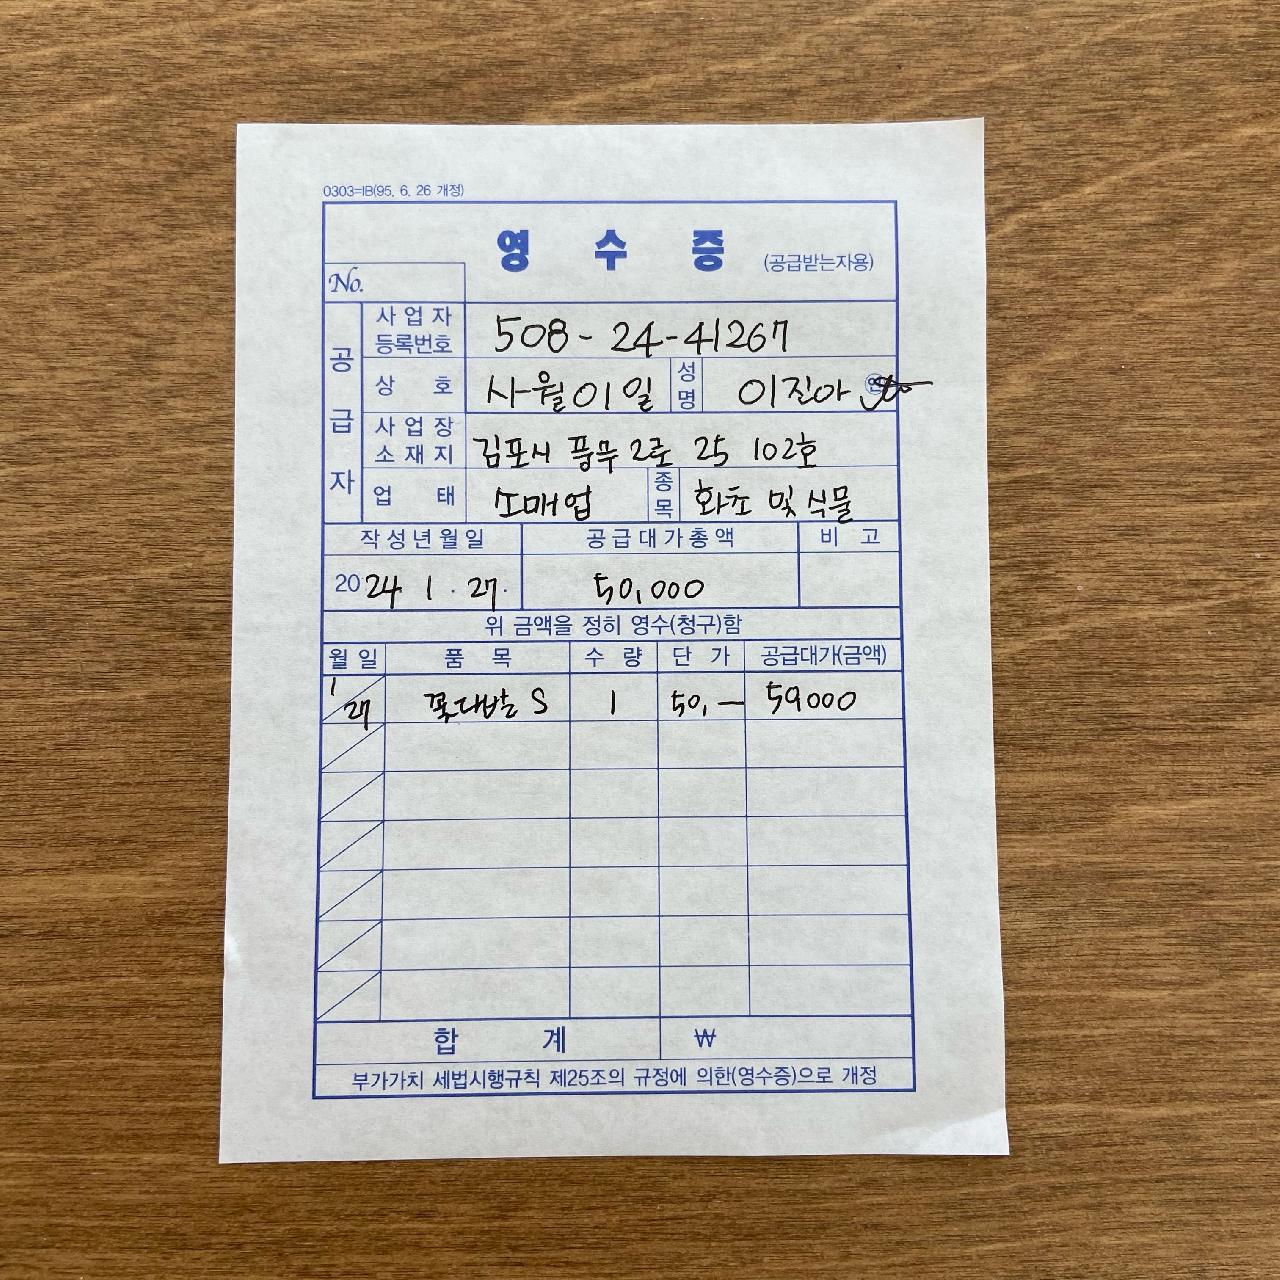 0303=IB(95. 6. 26 개정)
영 수 증 (공급받는자용)
No.
공급자
사업자등록번호 508-24-41267
상 호 사월이일 성명 이진아 ㊞
사업장소재지 김포시 풍무2로 25 102호
업 태 소매업 종목 화초 및 식물
작성년월일 공급대가총액 비 고
2024 1 . 27. 50,000
위 금액을 정히 영수(청구)함
월 일 품 목 수 량 단 가 공급대가(금액)
1/27 꽃다발 S 1 50,— 50,000
합 계 ₩
부가가치 세법시행규칙 제25조의 규정에 의한(영수증)으로 개정